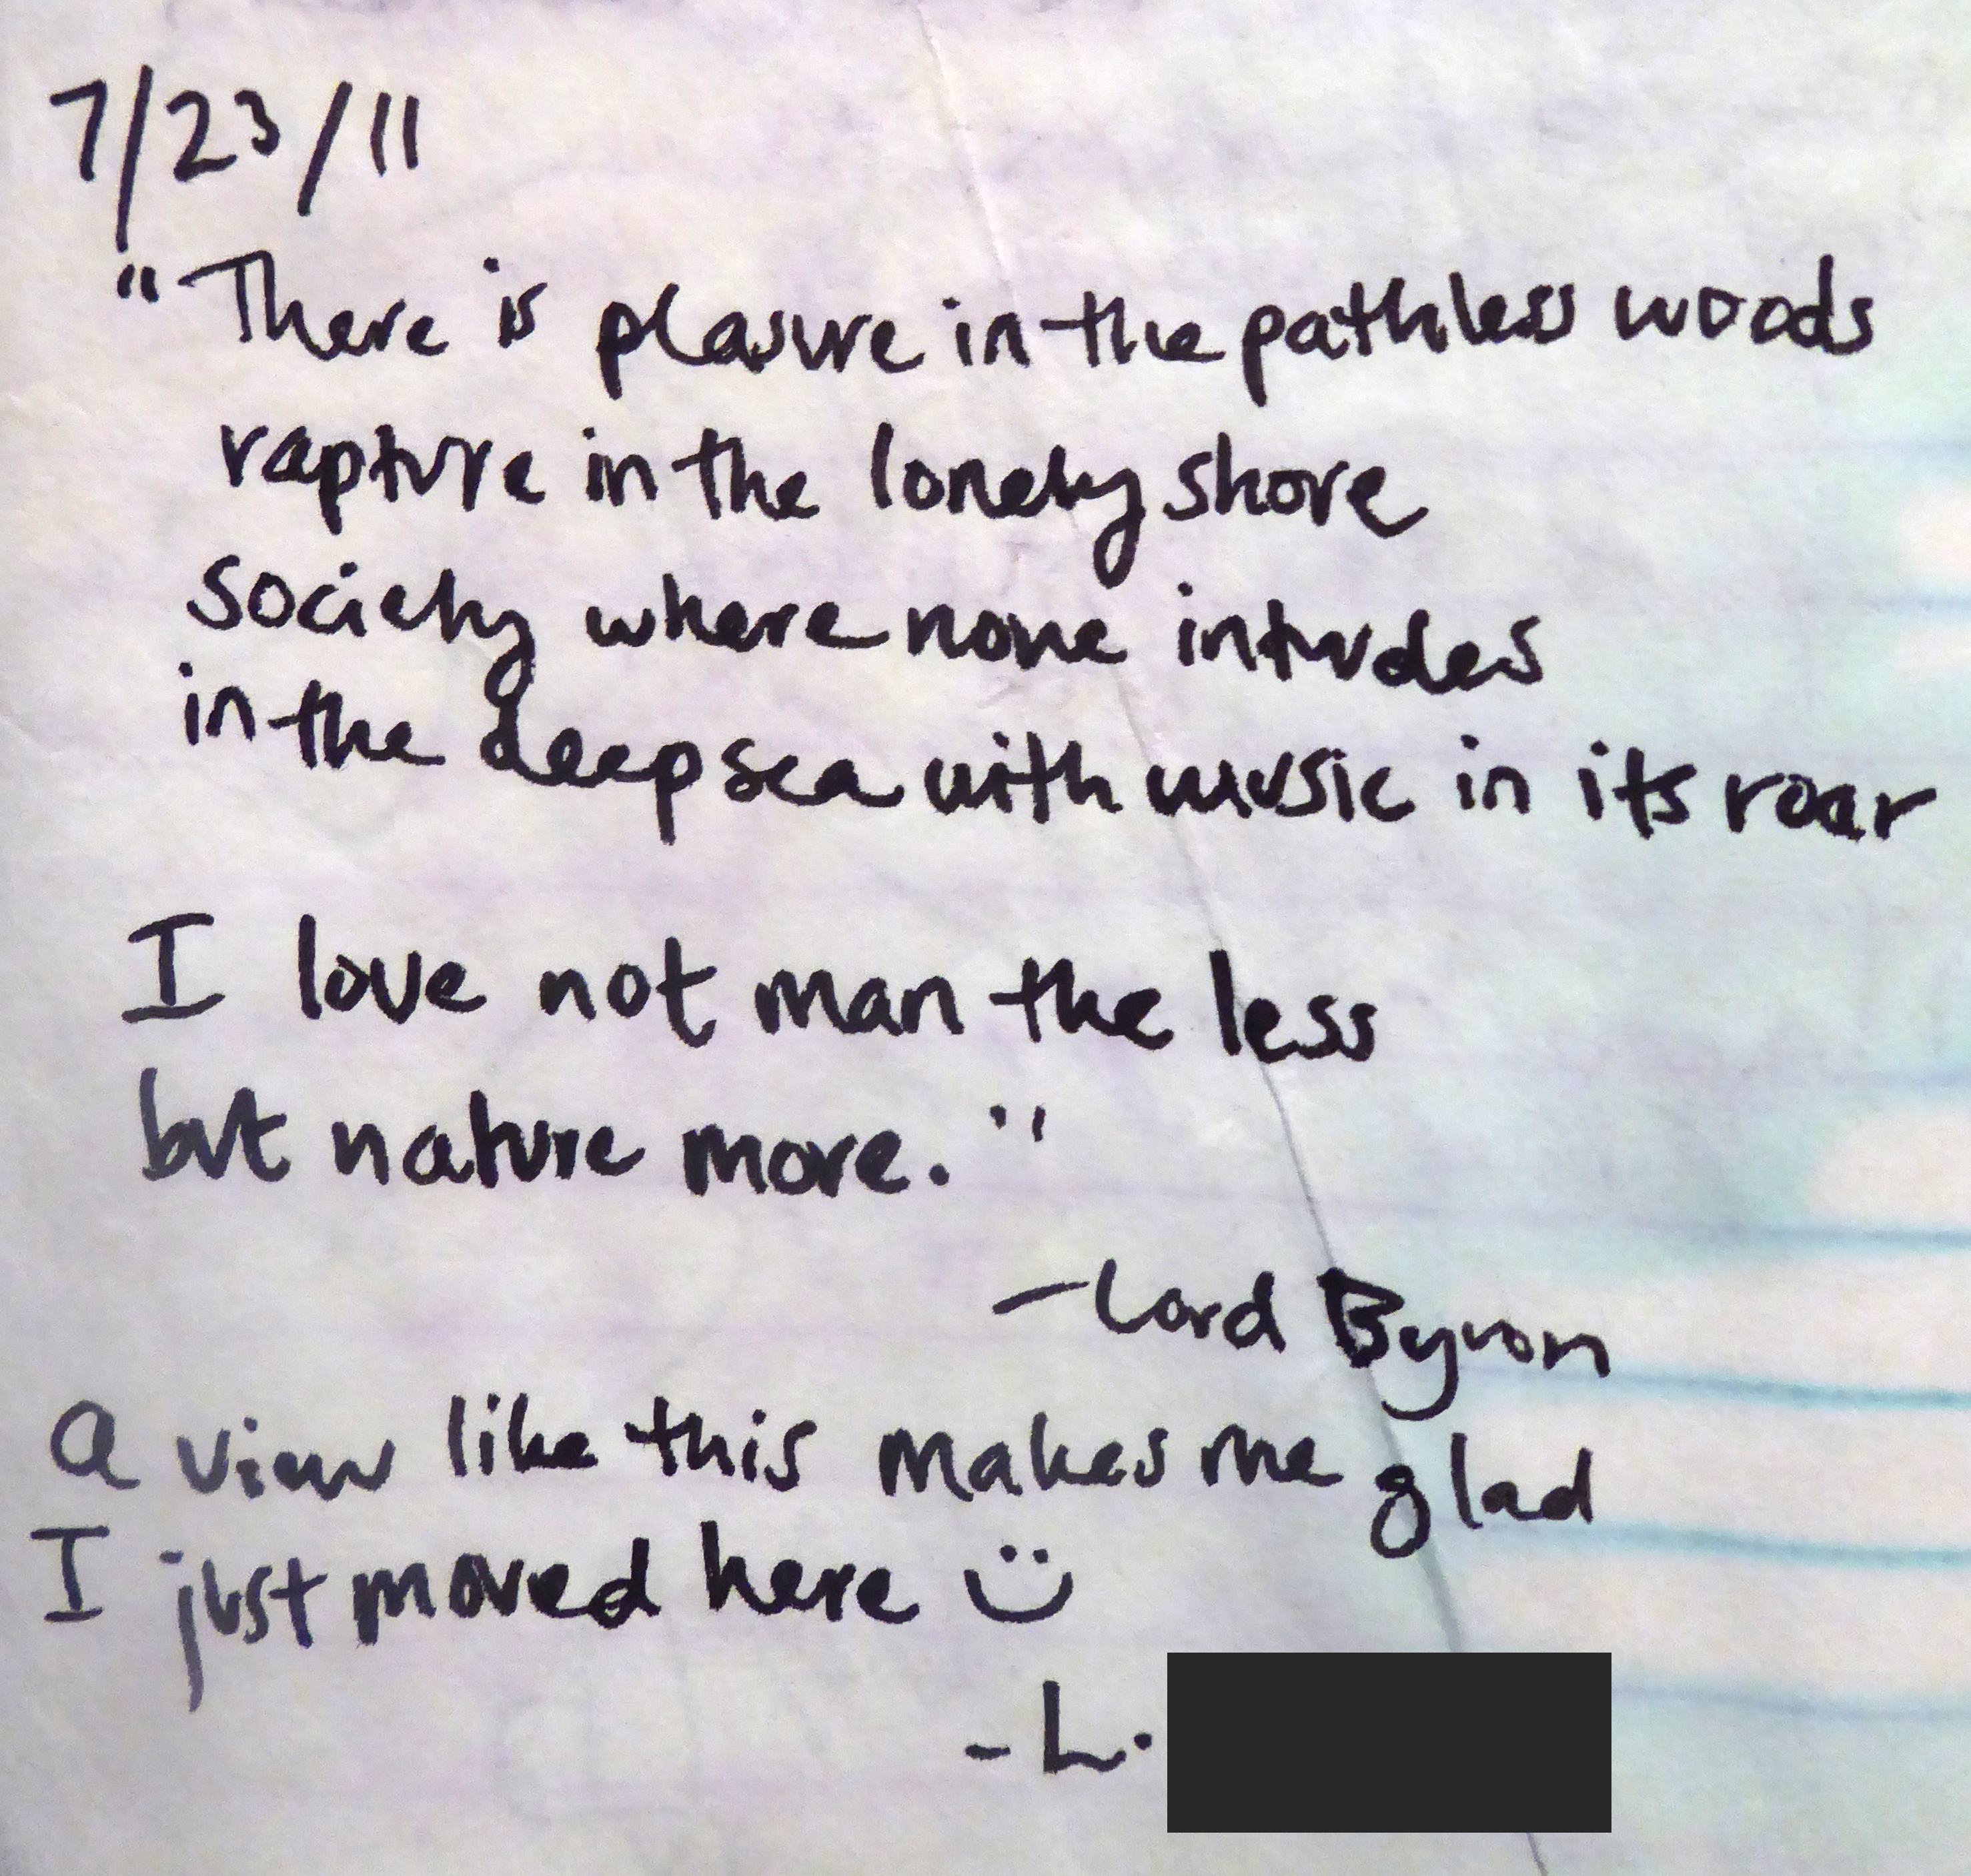 7/23/11
"There is plasure in the pathless woods
rapture in the lonely shore
society where none intrudes
in the deep sea with music in its roar
I love not man the less
but nature more."
-Lord Byron
a view like this makes me glad
I just moved here :)
-L.